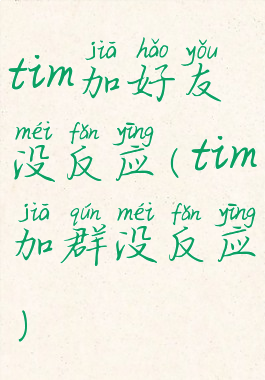 jiā hǎo yǒu
tim加好友
méi fǎn yīng
没反应(tim
jiā qún méi fǎn yīng
加群没反应
)